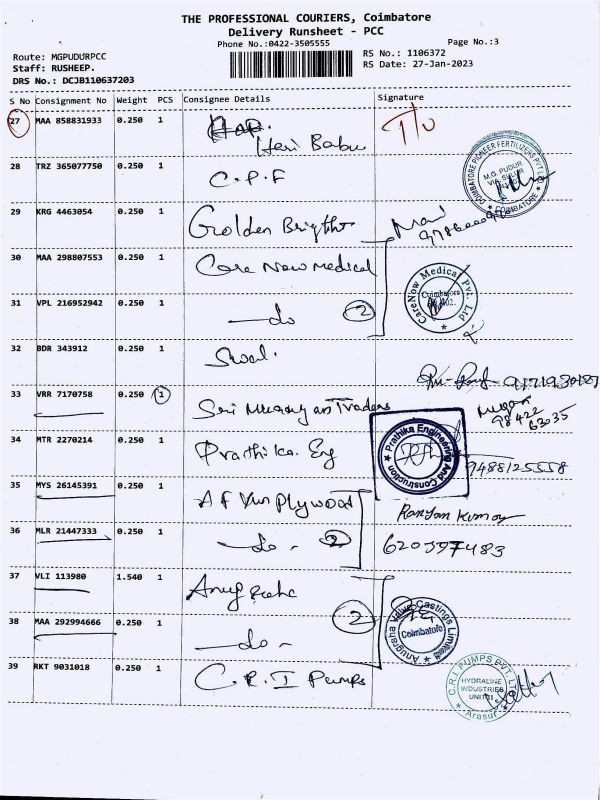 THE PROFESSIONAL COURIERS, Coimbatore
Delivery Runsheet - PCC
Phone No.:0422-3505555
Page No.:3
Route: MGPUDURPCC
Staff: RUSHEEP.
DRS No.: DCJB110637203
RS No.: 1106372
RS Date: 27-Jan-2023
S No Consignment No Weight PCS Consignee Details Signature
27 MAA 858831933 0.250 1 Hari Babu T/O
28 TRZ 365077750 0.250 1 C.P.F
COIMBATORE PIONEER FERTILIZERS PVT LTD
M.G. PUDUR
VIA SULUR
COIMBATORE
29 KRG 4463054 0.250 1 Golden Bright
30 MAA 298807553 0.250 1 Care Now Medical
CareNow Medical Pvt. Ltd
Coimbatore
31 VPL 216952942 0.250 1 -do 2
32 BDR 343912 0.250 1
33 VRR 7170758 0.250 1 Sri Murugan Traders
98422
63035
34 MTR 2270214 0.250 1 Prathika. Eng
Prathika Engineering And Construction
9488125558
35 MYS 26145391 0.250 1 Plywood Ranjan Kumar
36 MLR 21447333 0.250 1 -do- 2 620597483
37 VLI 113980 1.540 1 Anugraha
Anugraha Valve Castings Limited
Coimbatore
38 MAA 292994666 0.250 1 -do- 2
39 RKT 9031018 0.250 1 C.R.I Pumps
C.R.I PUMPS PVT. LTD
HYDRALINE
INDUSTRIES
UNIT I
Arasur